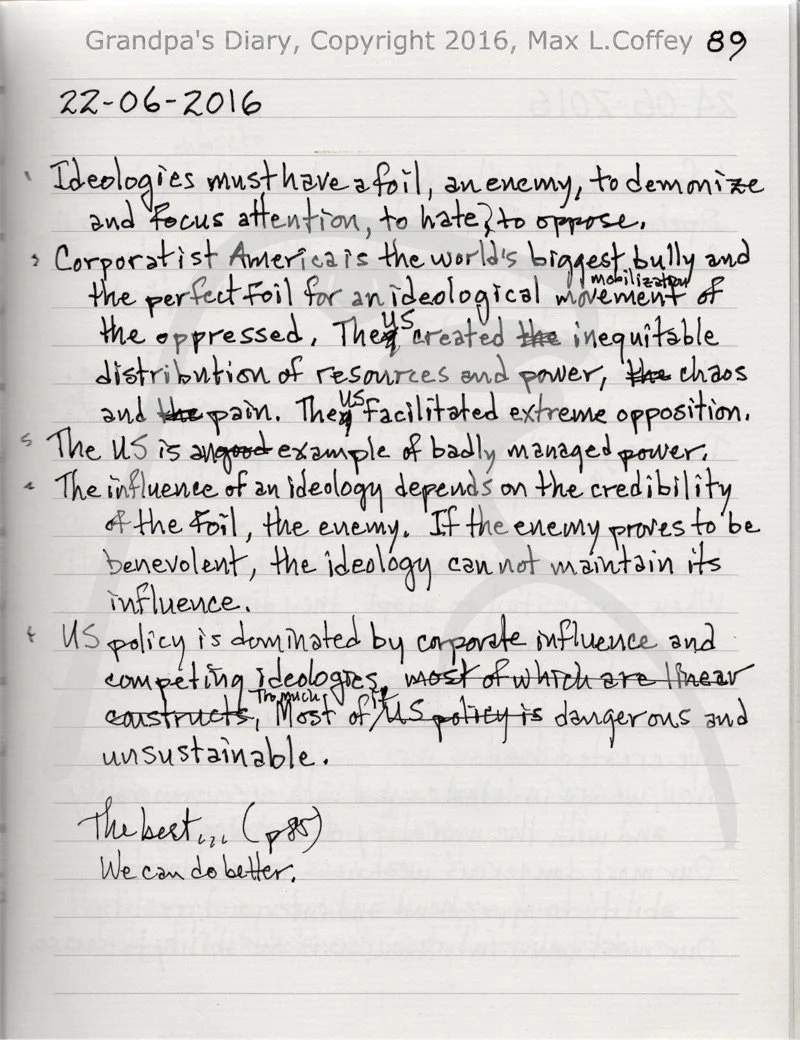 Grandpa's Diary, Copyright 2016, Max L.Coffey 89
22-06-2016
1 Ideologies must have a foil, an enemy, to demonize
and focus attention, to hate & to oppose.
2 Corporatist America is the world's biggest bully and
mobilization
the perfect foil for an ideological movement of
US
the oppressed. They created the inequitable
distribution of resources and power, the chaos
US
and the pain. They facilitated extreme opposition.
5 The US is an good example of badly managed power.
The influence of an ideology depends on the credibility
of the foil, the enemy. If the enemy proves to be
benevolent, the ideology can not maintain its
influence.
4 US policy is dominated by corporate influence and
competing ideologies, most of which are linear
Too much it
constructs, Most of US policy is dangerous and
unsustainable.
The best... (p85)
We can do better.